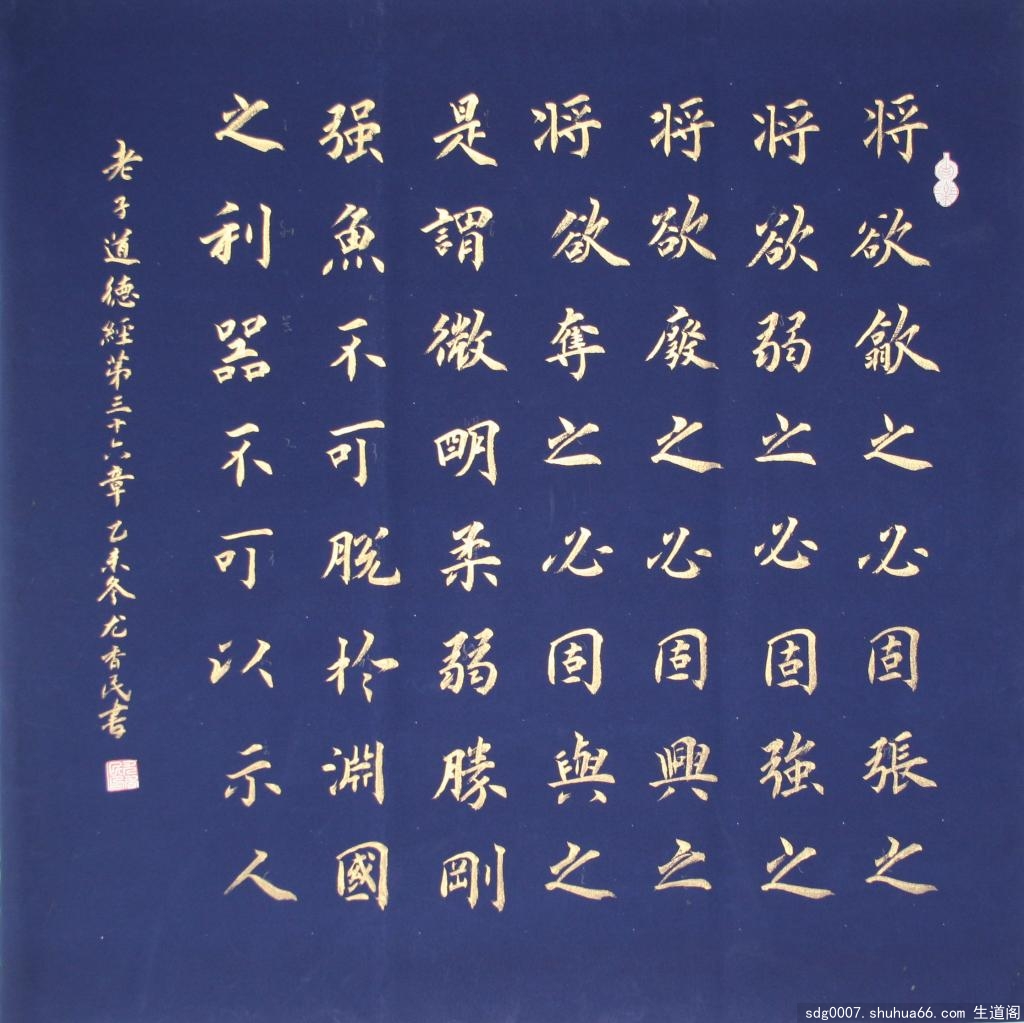 将欲歙之必固張之
将欲弱之必固強之
将欲廢之必固興之
将欲奪之必固與之
是謂微明柔弱勝剛
强魚不可脱於淵國
之利器不可以示人
老子道德經第三十六章乙未冬尤香民書
sdg0007.shuhua66.com 生道阁